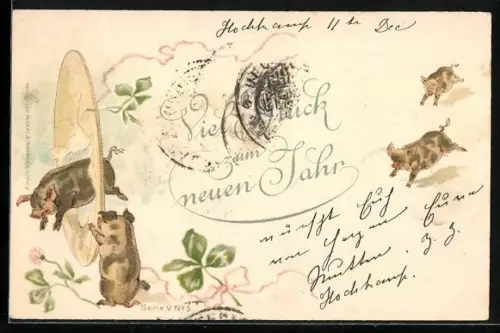 Hochkamp 11te Dec
Viel Glück
zum
neuen Jahr
wünscht Euch
von Herzen Eure
Mutter.
Hochkamp.
Serie V No 5